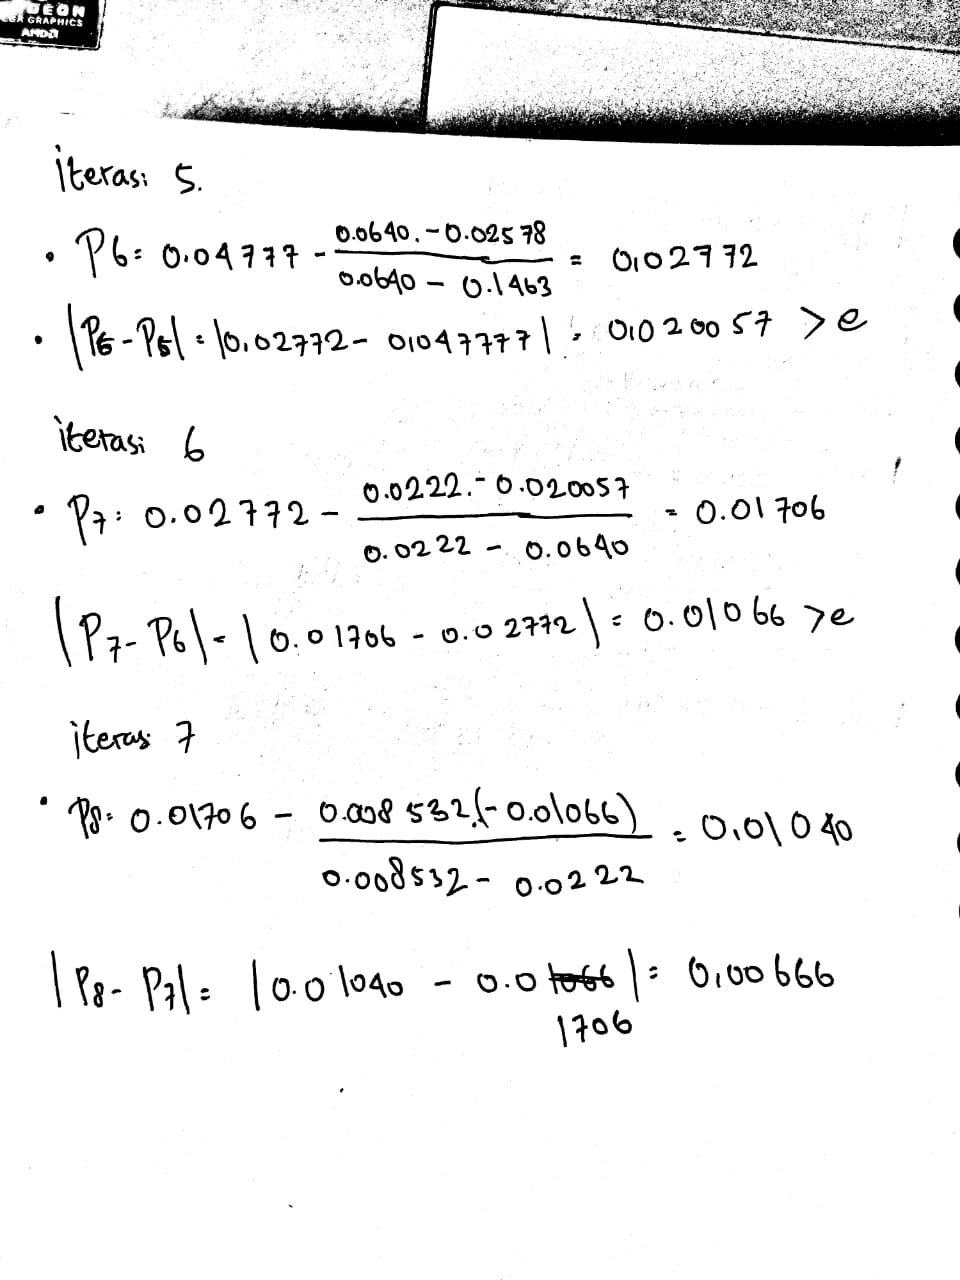 DEON
GRAPHICS
AMD
iterasi 5.
• P6= 0.04777 - 0.0640.-0.02578 / 0.0640 - 0.1463 = 0,02772
• |P6-P5| = |0,02772 - 0,047777| = 0,020057 >e
iterasi 6
• P7: 0.02772 - 0.0222.-0.020057 / 0.0222 - 0.0640 = 0.01706
|P7-P6| = |0.01706 - 0.02772| = 0.01066 >e
iterasi 7
• P8= 0.01706 - 0.008532.(-0.01066) / 0.008532 - 0.0222 = 0,01040
|P8-P7| = |0.01040 - 0.01066| = 0,00666
1706